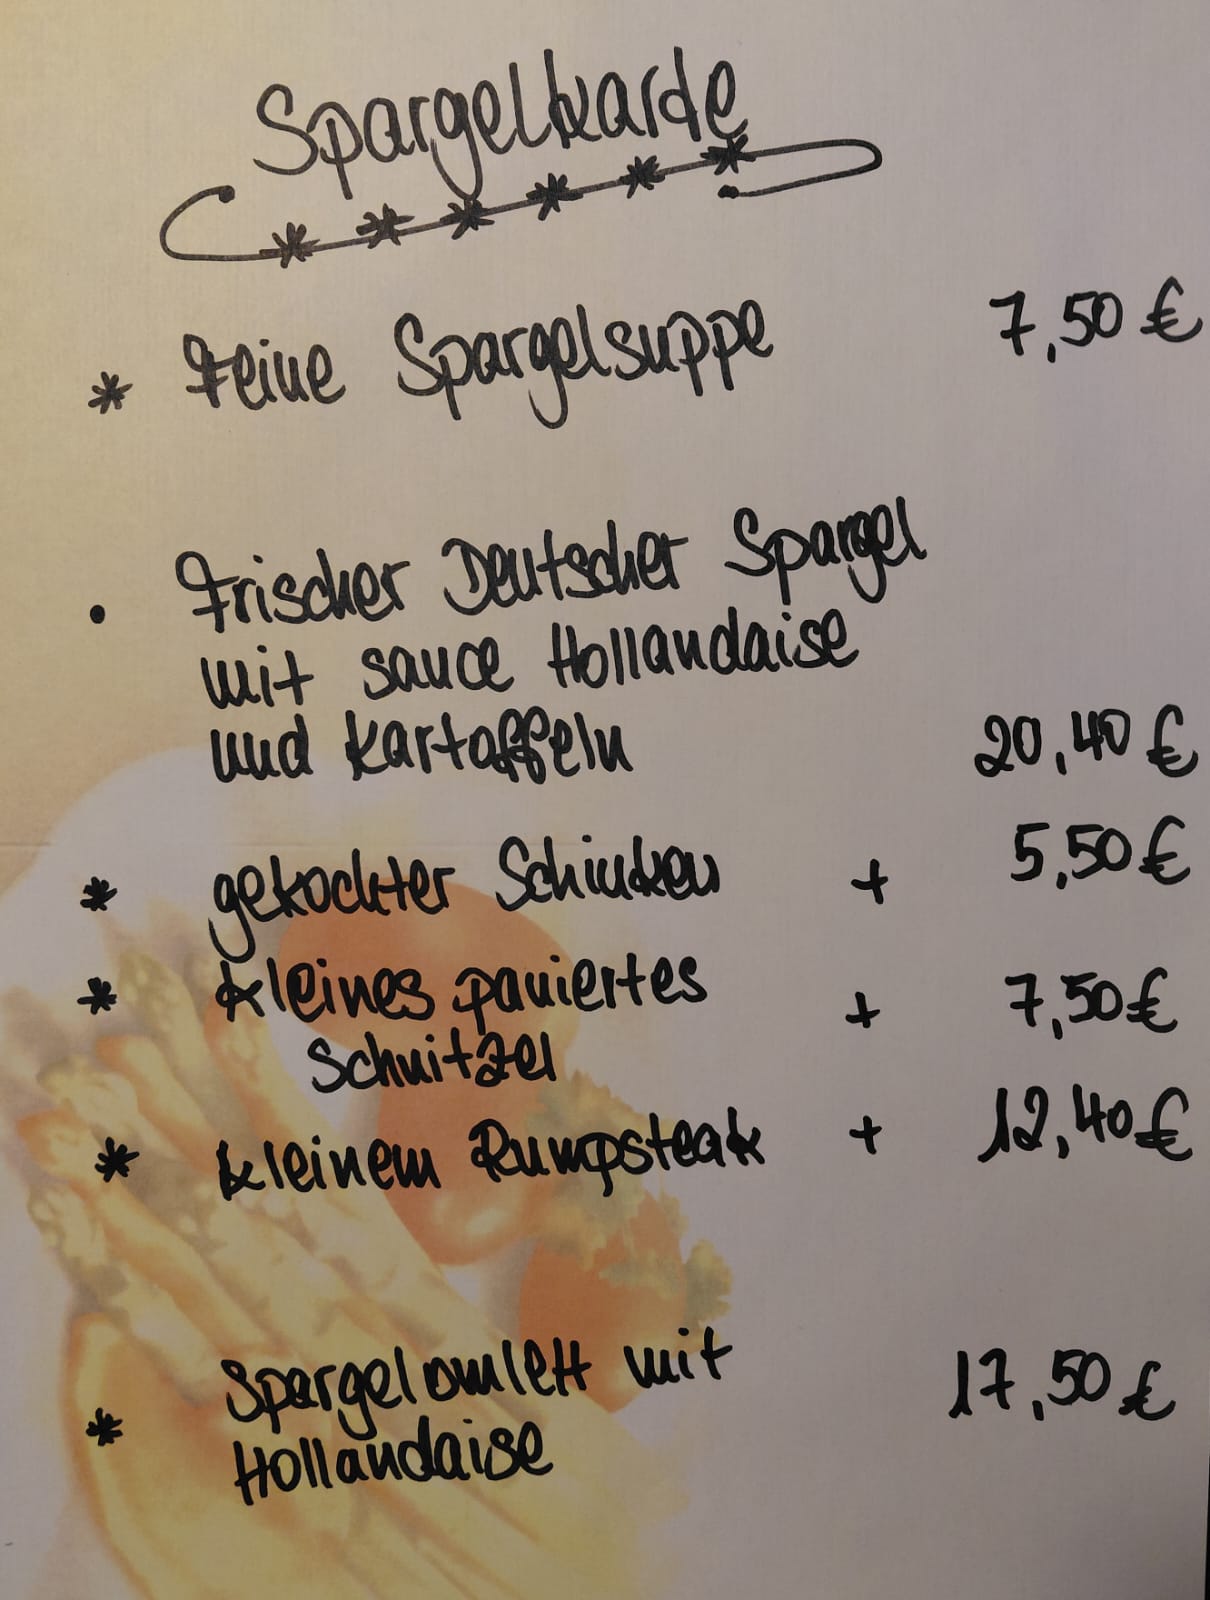 Spargelkarte
* Feine Spargelsuppe 7,50 €
• Frischer Deutscher Spargel
mit sauce Hollandaise
und Kartoffeln 20,40 €
* gekochter Schinken + 5,50 €
* kleines paniertes
Schnitzel + 7,50 €
* kleinem Rumpsteak + 12,40 €
* Spargelomlett mit
Hollandaise 17,50 €